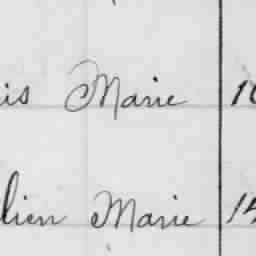 is Marie 10
lien Marie 14